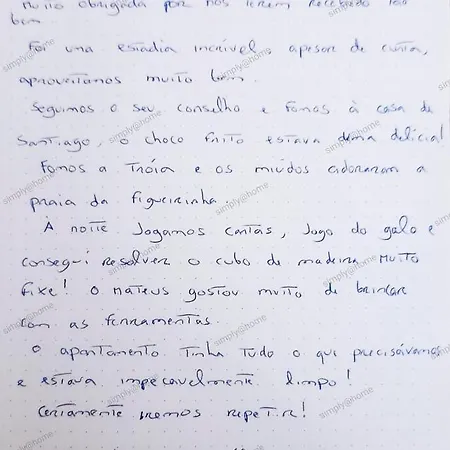 Muito obrigada por nos terem recebido tão
bem.
Foi uma estadia incrível, apesar de curta,
aproveitamos muito bem.
Seguimos o seu conselho e fomos à casa de
Santiago, o choco frito estava duma delícia!
Fomos a Tróia e os miudos adoraram a
praia da figueirinha.
À noite Jogamos cartas, Jogo do galo e
consegui resolver o cubo de madeira. Muito
fixe! O Mateus gostou muito de brincar
com as ferramentas.
O apartamento tinha tudo o que precisávamos
e estava impecavelmente limpo!
Certamente iremos repetir!
simply@home